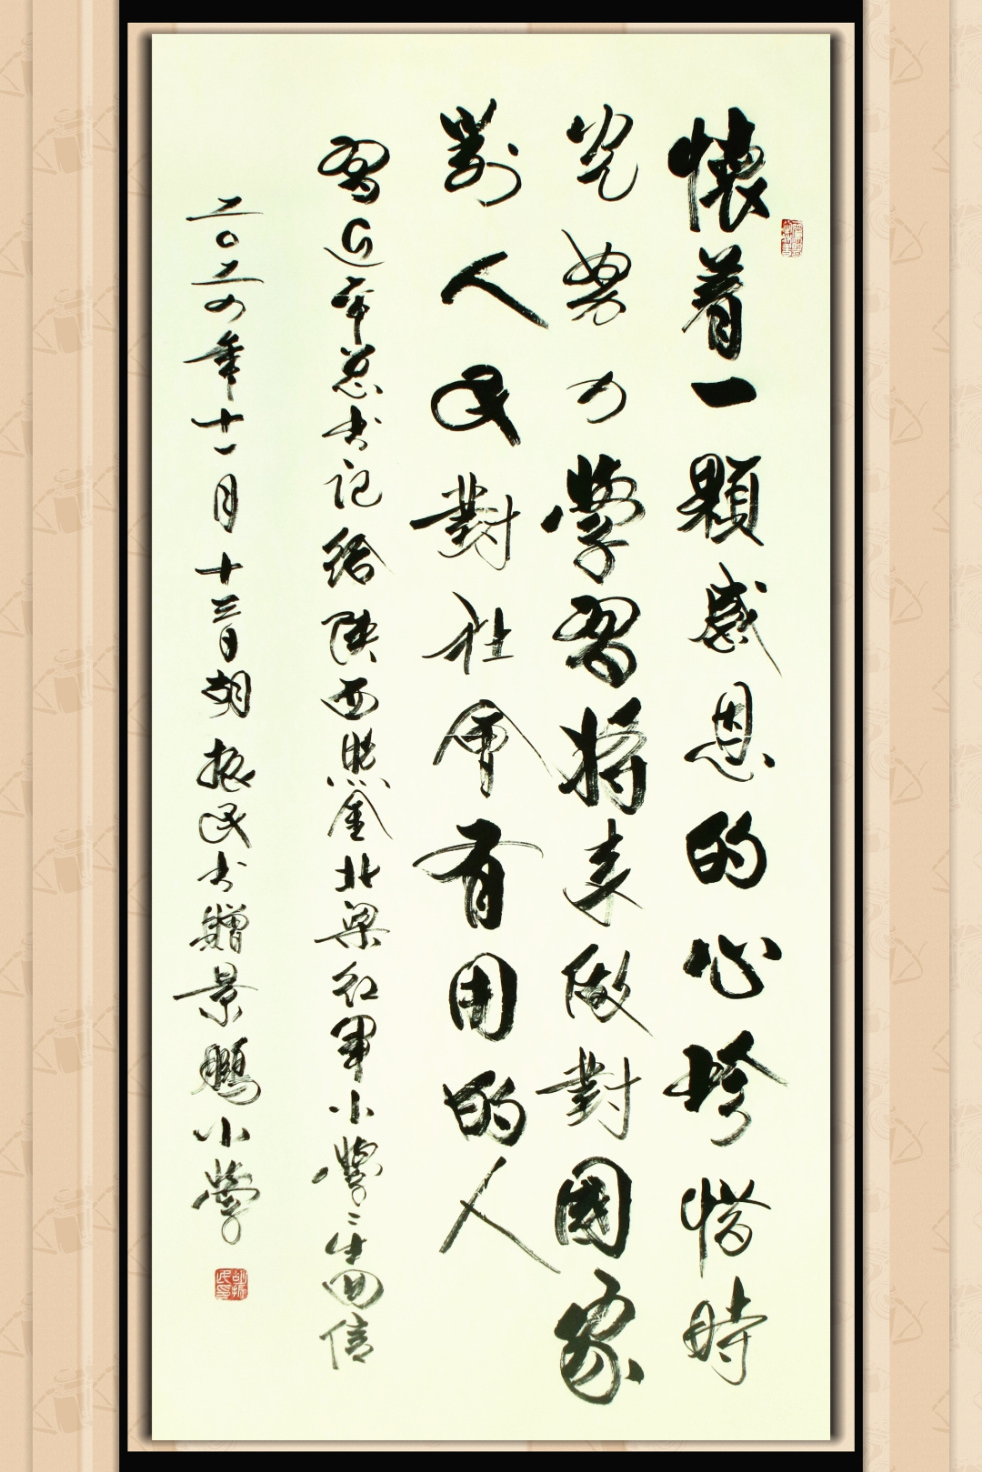 懷着一顆感恩的心珍惜時
光努力學習將來做對國家
對人民對社會有用的人
習近平总书记给陕西照金北梁红軍小學〻生回信
二〇二四年十一月十三日胡振民书贈景鵬小學